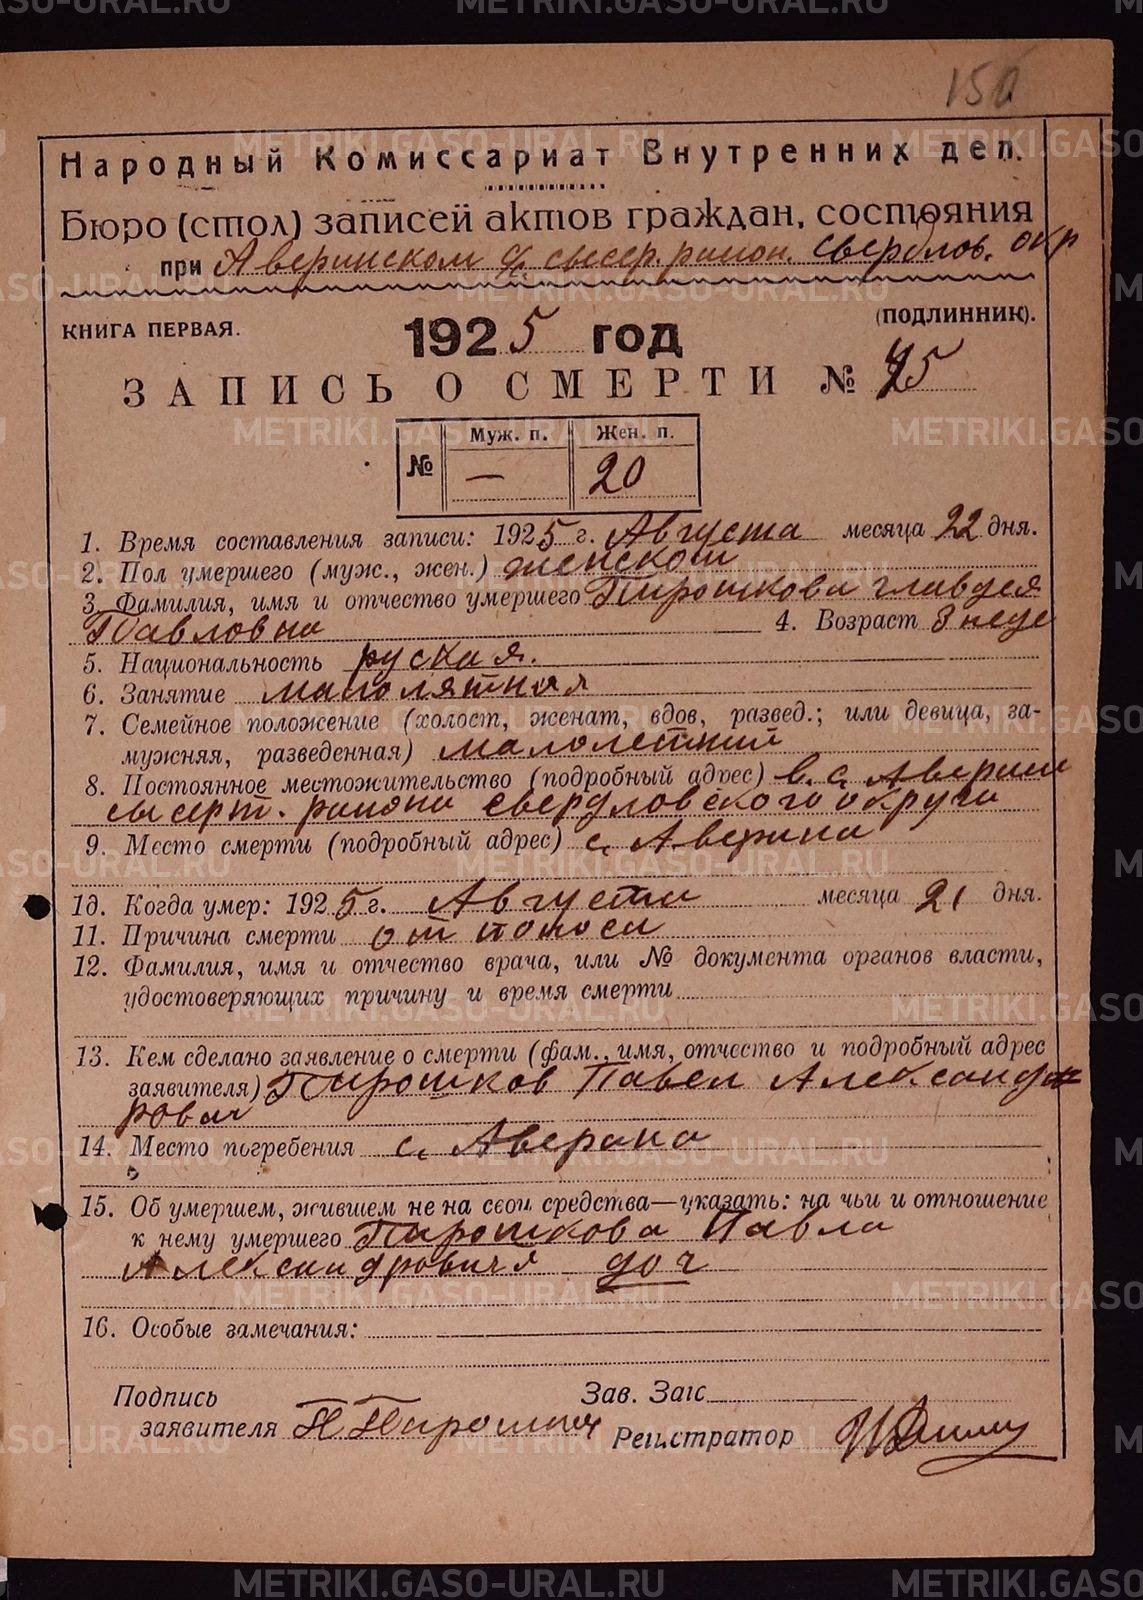 150
Народный Комиссариат Внутренних дел.
Бюро (стол) записей актов граждан. состояния
при Аверинском с/с сысер. район. свердлов. окр
КНИГА ПЕРВАЯ.
(ПОДЛИННИК).
1925 год
ЗАПИСЬ О СМЕРТИ № 45
№ Муж. п. Жен. п.
— 20
1. Время составления записи: 1925 г. Августа месяца 22 дня.
2. Пол умершего (муж., жен.) женской
3. Фамилия, имя и отчество умершего Пирошкова главдея
Павловна 4. Возраст 3 неде
5. Национальность руская.
6. Занятие малолятная
7. Семейное положение (холост, женат, вдов, развед.; или девица, за-
мужняя, разведенная) малолетний
8. Постоянное местожительство (подробный адрес) в. с. Аверине
сысерт. района свердловского округа
9. Место смерти (подробный адрес) с. Аверина
10. Когда умер: 1925 г. Августа месяца 21 дня.
11. Причина смерти от поноса
12. Фамилия, имя и отчество врача, или № документа органов власти,
удостоверяющих причину и время смерти
13. Кем сделано заявление о смерти (фам., имя, отчество и подробный адрес
заявителя) Пирошков Павел Александ
рович
14. Место погребения с. Аверина
15. Об умершем, жившем не на свои средства—указать: на чьи и отношение
к нему умершего Пирошкова Павла
Александровича доч
16. Особые замечания:
Подпись Зав. Загс
заявителя П Пирошков Регистратор
METRIKI.GASO-URAL.RU